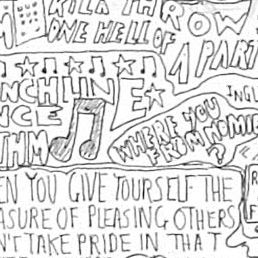 THROW
ONE HELL OF
A PART
NCHLINE
NCE
THM
WHERE YOU
FROM
?
EN YOU GIVE YOURSELF THE
ASURE OF PLEASING OTHERS
N'T TAKE PRIDE IN THAT